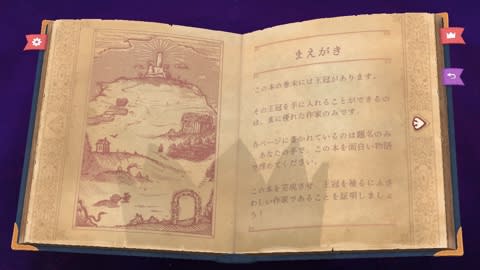 まえがき
この本の巻末には王冠があります。
その王冠を手に入れることができるの
は、真に優れた作家のみです。
各ページに書かれているのは題名のみ
。あなたの手で、この本を面白い物語
で埋めてください。
この本を完成させ、王冠を被るにふさ
わしい作家であることを証明しましょ
う！